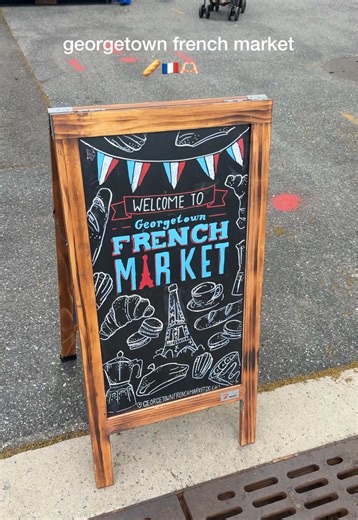 georgetown french market
🥖🇫🇷🥨
WELCOME TO
Georgetown
FRENCH
MARKET